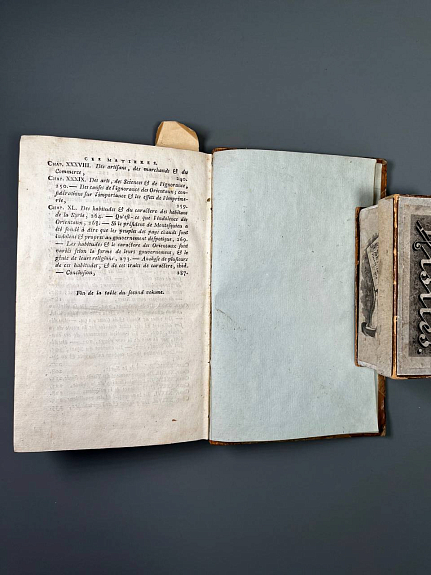 DES MATIERES.
CHAP. XXXVIII. Des artisans, des marchands & du
Commerce, 140.
CHAP. XXXIX. Des arts, des Sciences & de l'ignorance,
150. — Des causes de l'ignorance des Orientaux; con-
sidérations sur l'importance & les effets de l'Imprime-
rie, 159.
CHAP. XL. Des habitudes & du caractere des habitans
de la Syrie, 264. — Qu'est-ce que l'indolence des
Orientaux, 265. — Si le président de Montesquieu a
été fondé à dire que les peuples des pays chauds sont
indolens & propres au gouvernement despotique, 269.
— Les habitudes & le caractere des Orientaux sont
selon la forme de leurs gouvernemens, & le
génie de leurs religions, 273. — Analyse de plusieurs
de ces habitudes, & de ces traits de caractere, ibid.
— Conclusion, 287.
Fin de la table du second volume.